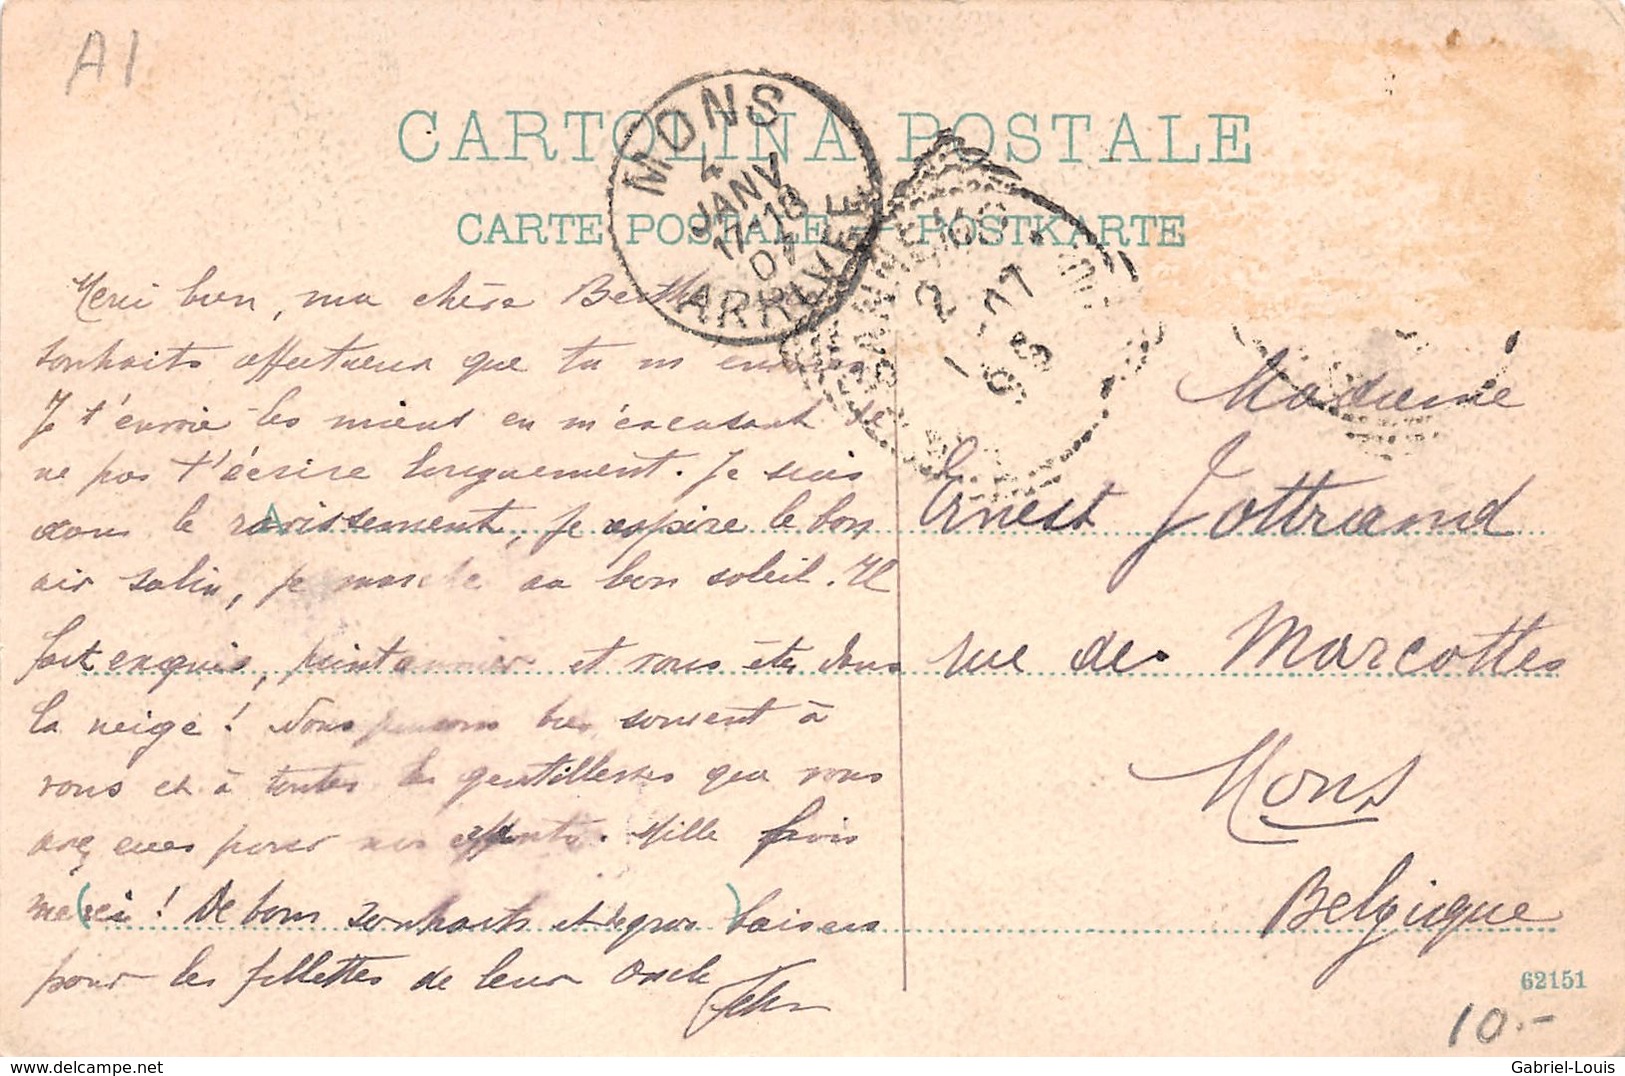 A1
CARTOLINA POSTALE
CARTE POSTALE – POSTKARTE
MONS
4
JANV
17-18
07
ARRIVÉE
2 1 07
Merci bien, ma chère Berthe
souhaits affectueux que tu m'envoies
Je t'envoie les miens en m'excusant de
ne pas t'écrire longuement. Je suis
dans le ravissement, je aspire le bon
air salin, je marche au bon soleil. Il
fait exquis, printannier et vous êtes dans
la neige ! Nous pensons bien souvent à
vous et à toutes les gentillesses que vous
avez eues pour nos enfants. Mille fois
merci ! De bons souhaits et de gros baisers
pour les fillettes de leur oncle
Madame
Ernest Jottrand
rue des Marcottes
Mons
Belgique
62151
10.-
www.delcampe.net
Gabriel-Louis